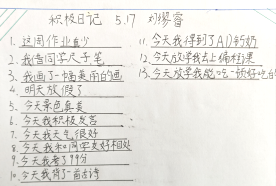 积极日记 5.17 刘缪睿
1. 这周作业少
2. 我借同学尺子笔
3. 我画了一幅美丽的画
4. 明天放假了
5. 今天景色真美
6. 今天我积极发言
7. 今天天气很好
8. 今天我和同学友好相处
9. 今天我考了99分
10. 今天我背了一首古诗
11. 今天我得到了AD钙奶
12. 今天放学我去上编程课
13. 今天放学我能吃一顿好吃的